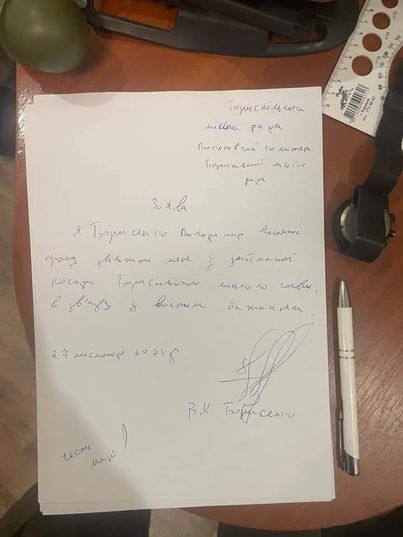 Бориспільська
міська рада
Виконавчий комітет
Бориспільської міської
ради
Заява
Я Борисенко Володимир
прошу звільнити мене з займаної
посади Бориспільського міського голови,
в зв'язку з власним бажанням.
27 листопада р
В.К Борисенко
честь
маю!